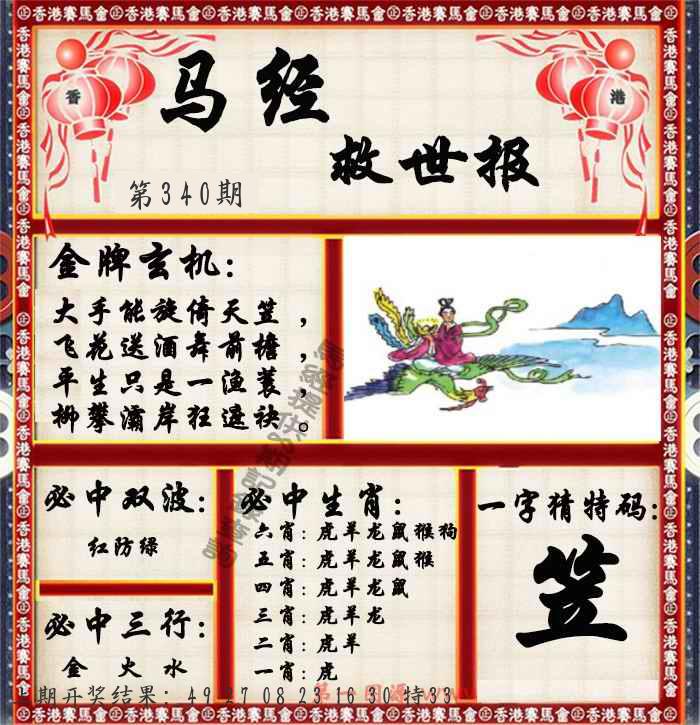 香港賽馬會
香
港
马经
救世报
第340期
金牌玄机:
大手能旋倚天笠，
飞花送酒舞前檐，
平生只是一渔蓑，
柳攀灞岸狂遮袂。
必中双波:
红防绿
必中三行:
金 火 水
必中生肖:
六肖: 虎羊龙鼠猴狗
五肖: 虎羊龙鼠猴
四肖: 虎羊龙鼠
三肖: 虎羊龙
二肖: 虎羊
一肖: 虎
一字猜特码:
笠
期开奖结果: 49 27 08 23 16 30 特33